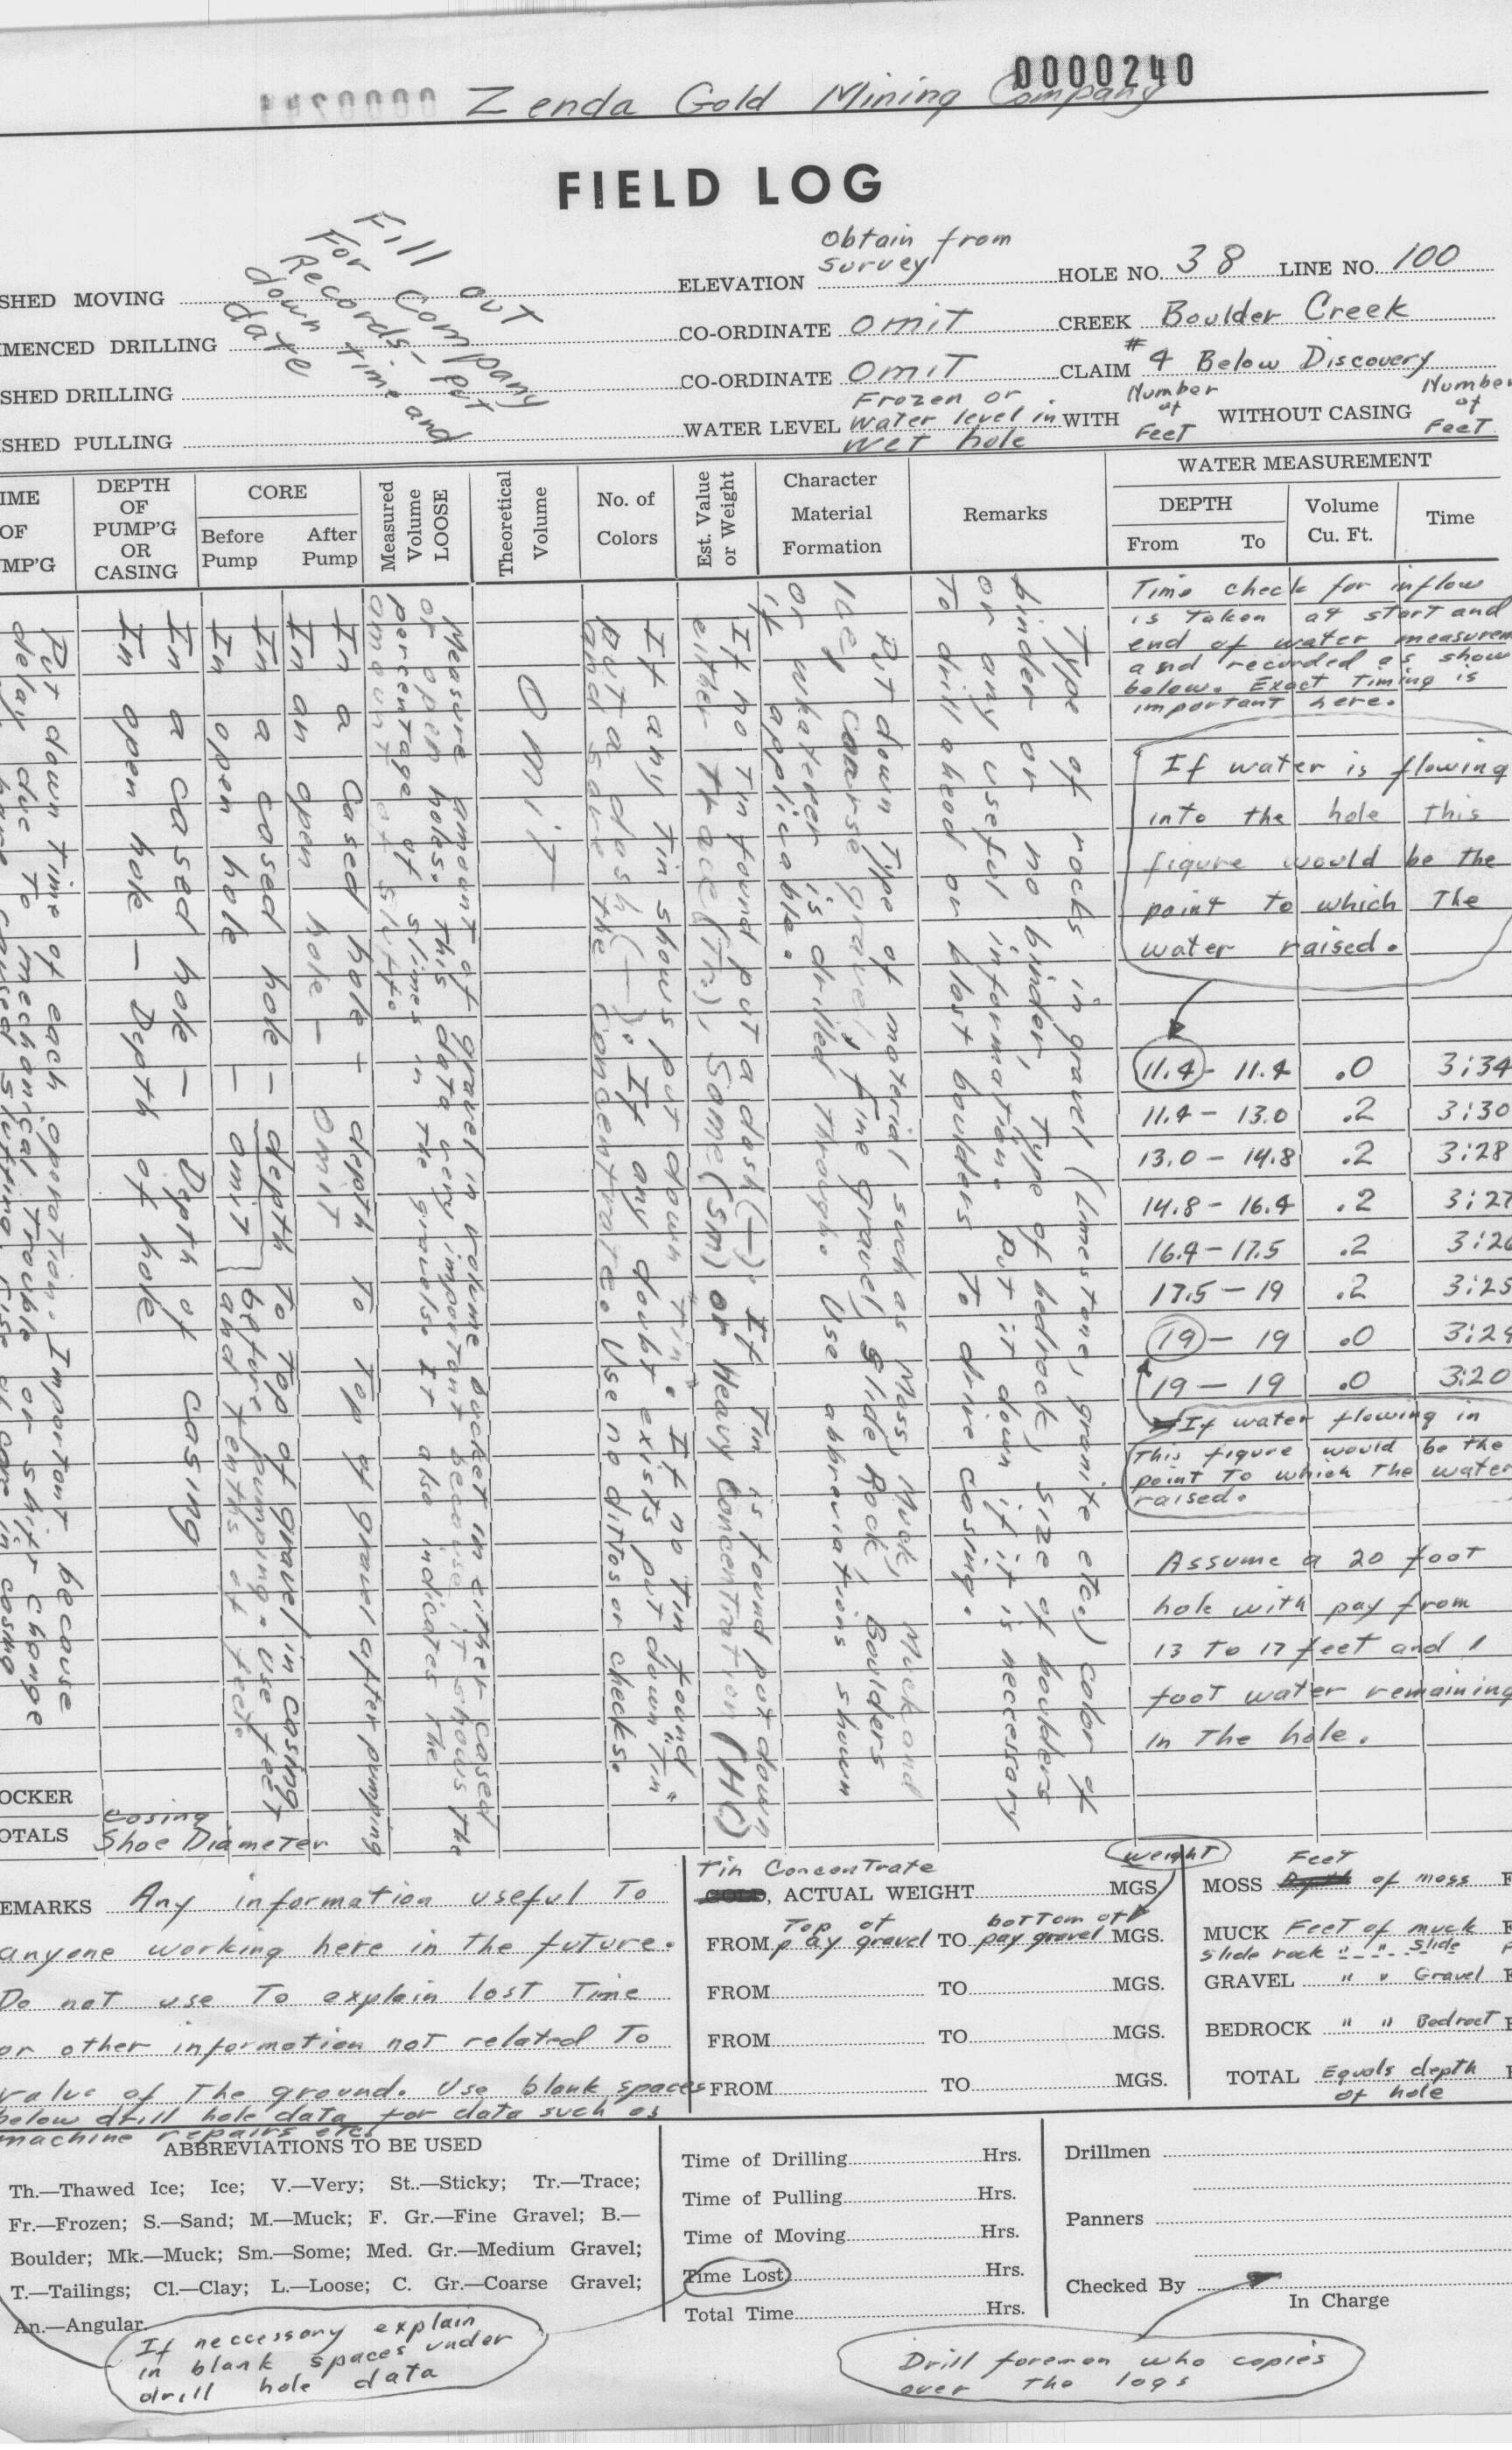 0000240
Zenda Gold Mining Company
FIELD LOG
Fill out
For Company
Records- Put
down time and
date
SHED MOVING
MENCED DRILLING
SHED DRILLING
SHED PULLING
ELEVATION Obtain from survey
CO-ORDINATE omit
CO-ORDINATE omit
WATER LEVEL Frozen or water level in wet hole
HOLE NO. 38 LINE NO. 100
CREEK Boulder Creek
CLAIM #4 Below Discovery
WITH Number of Feet WITHOUT CASING Number of Feet
IME OF MP'G
DEPTH OF PUMP'G OR CASING
CORE
Before Pump
After Pump
Measured Volume LOOSE
Theoretical Volume
No. of Colors
Est. Value or Weight
Character Material Formation
Remarks
WATER MEASUREMENT
DEPTH
From To
Volume Cu. Ft.
Time
Put down time of each operation. Important because
delay due to mechanical trouble or shift change
In a cased hole - Depth of casing
In open hole - Depth of hole
In a cased hole - depth to top of gravel in casing
before pumping. Use feet
and tenths of feet.
In open hole - omit
In a Cased hole - depth to top of gravel after pumping
In an open hole - omit
Measure amount of gravel in volume bucket in either cased
or open holes. This data very important because it shows the
percentage of slimes in the gravels. It also indicates the
amount of sluff.
Omit
If any tin shows put down "tin". If no tin found
put a dash (-). If any doubt exists put down "Tin"
and save the concentrate. Use no ditos or checks.
If no tin found put a dash (-). If tin is found put down
either Trace (Tr.), Some (Sm) or Heavy Concentration (HC)
Put down type of material such as Moss, Muck, Muck and
Ice, coarse gravel, fine gravel, Slide Rock, Boulders
or whatever is drilled through. Use abbreviations shown
if applicable.
Type of rocks in gravel (limestone, granite etc.) color of
binder or no binder, type of bedrock, size of boulders
or any useful information. Put it down if it is necessary
to drill ahead or blast boulders to drive casing.
Time check for inflow
is taken at start and
end of water measurem
and recorded as show
below. Exact Timing is
important here.
If water is flowing
into the hole this
figure would be the
point to which the
water raised.
11.4 - 11.4 .0 3:34
11.4 - 13.0 .2 3:30
13.0 - 14.8 .2 3:28
14.8 - 16.4 .2 3:27
16.4 - 17.5 .2 3:26
17.5 - 19 .2 3:25
19 - 19 .0 3:24
19 - 19 .0 3:20
If water flowing in
this figure would be the
point to which the water
raised.
Assume a 20 foot
hole with pay from
13 to 17 feet and 1
foot water remaining
in the hole.
OCKER
OTALS Casing Shoe Diameter
EMARKS Any information useful to
anyone working here in the future.
Do not use to explain lost time
or other information not related to
value of the ground. Use blank spaces
below drill hole data for data such as
machine repairs etc.
Tin Concentrate weight
GOLD, ACTUAL WEIGHT MGS.
FROM Top of pay gravel TO bottom of pay gravel MGS.
FROM TO MGS.
FROM TO MGS.
FROM TO MGS.
MOSS Feet of moss F
MUCK Feet of muck F
Slide rock " " Slide F
GRAVEL " " Gravel F
BEDROCK " " Bedrock F
TOTAL Equals depth of hole
ABBREVIATIONS TO BE USED
Th.—Thawed Ice; Ice; V.—Very; St..—Sticky; Tr.—Trace;
Fr.—Frozen; S.—Sand; M.—Muck; F. Gr.—Fine Gravel; B.—
Boulder; Mk.—Muck; Sm.—Some; Med. Gr.—Medium Gravel;
T.—Tailings; Cl.—Clay; L.—Loose; C. Gr.—Coarse Gravel;
An.—Angular.
If neccessory explain
in blank spaces under
drill hole data
Time of Drilling Hrs.
Time of Pulling Hrs.
Time of Moving Hrs.
Time Lost Hrs.
Total Time Hrs.
Drillmen
Panners
Checked By
In Charge
Drill foreman who copies
over the logs